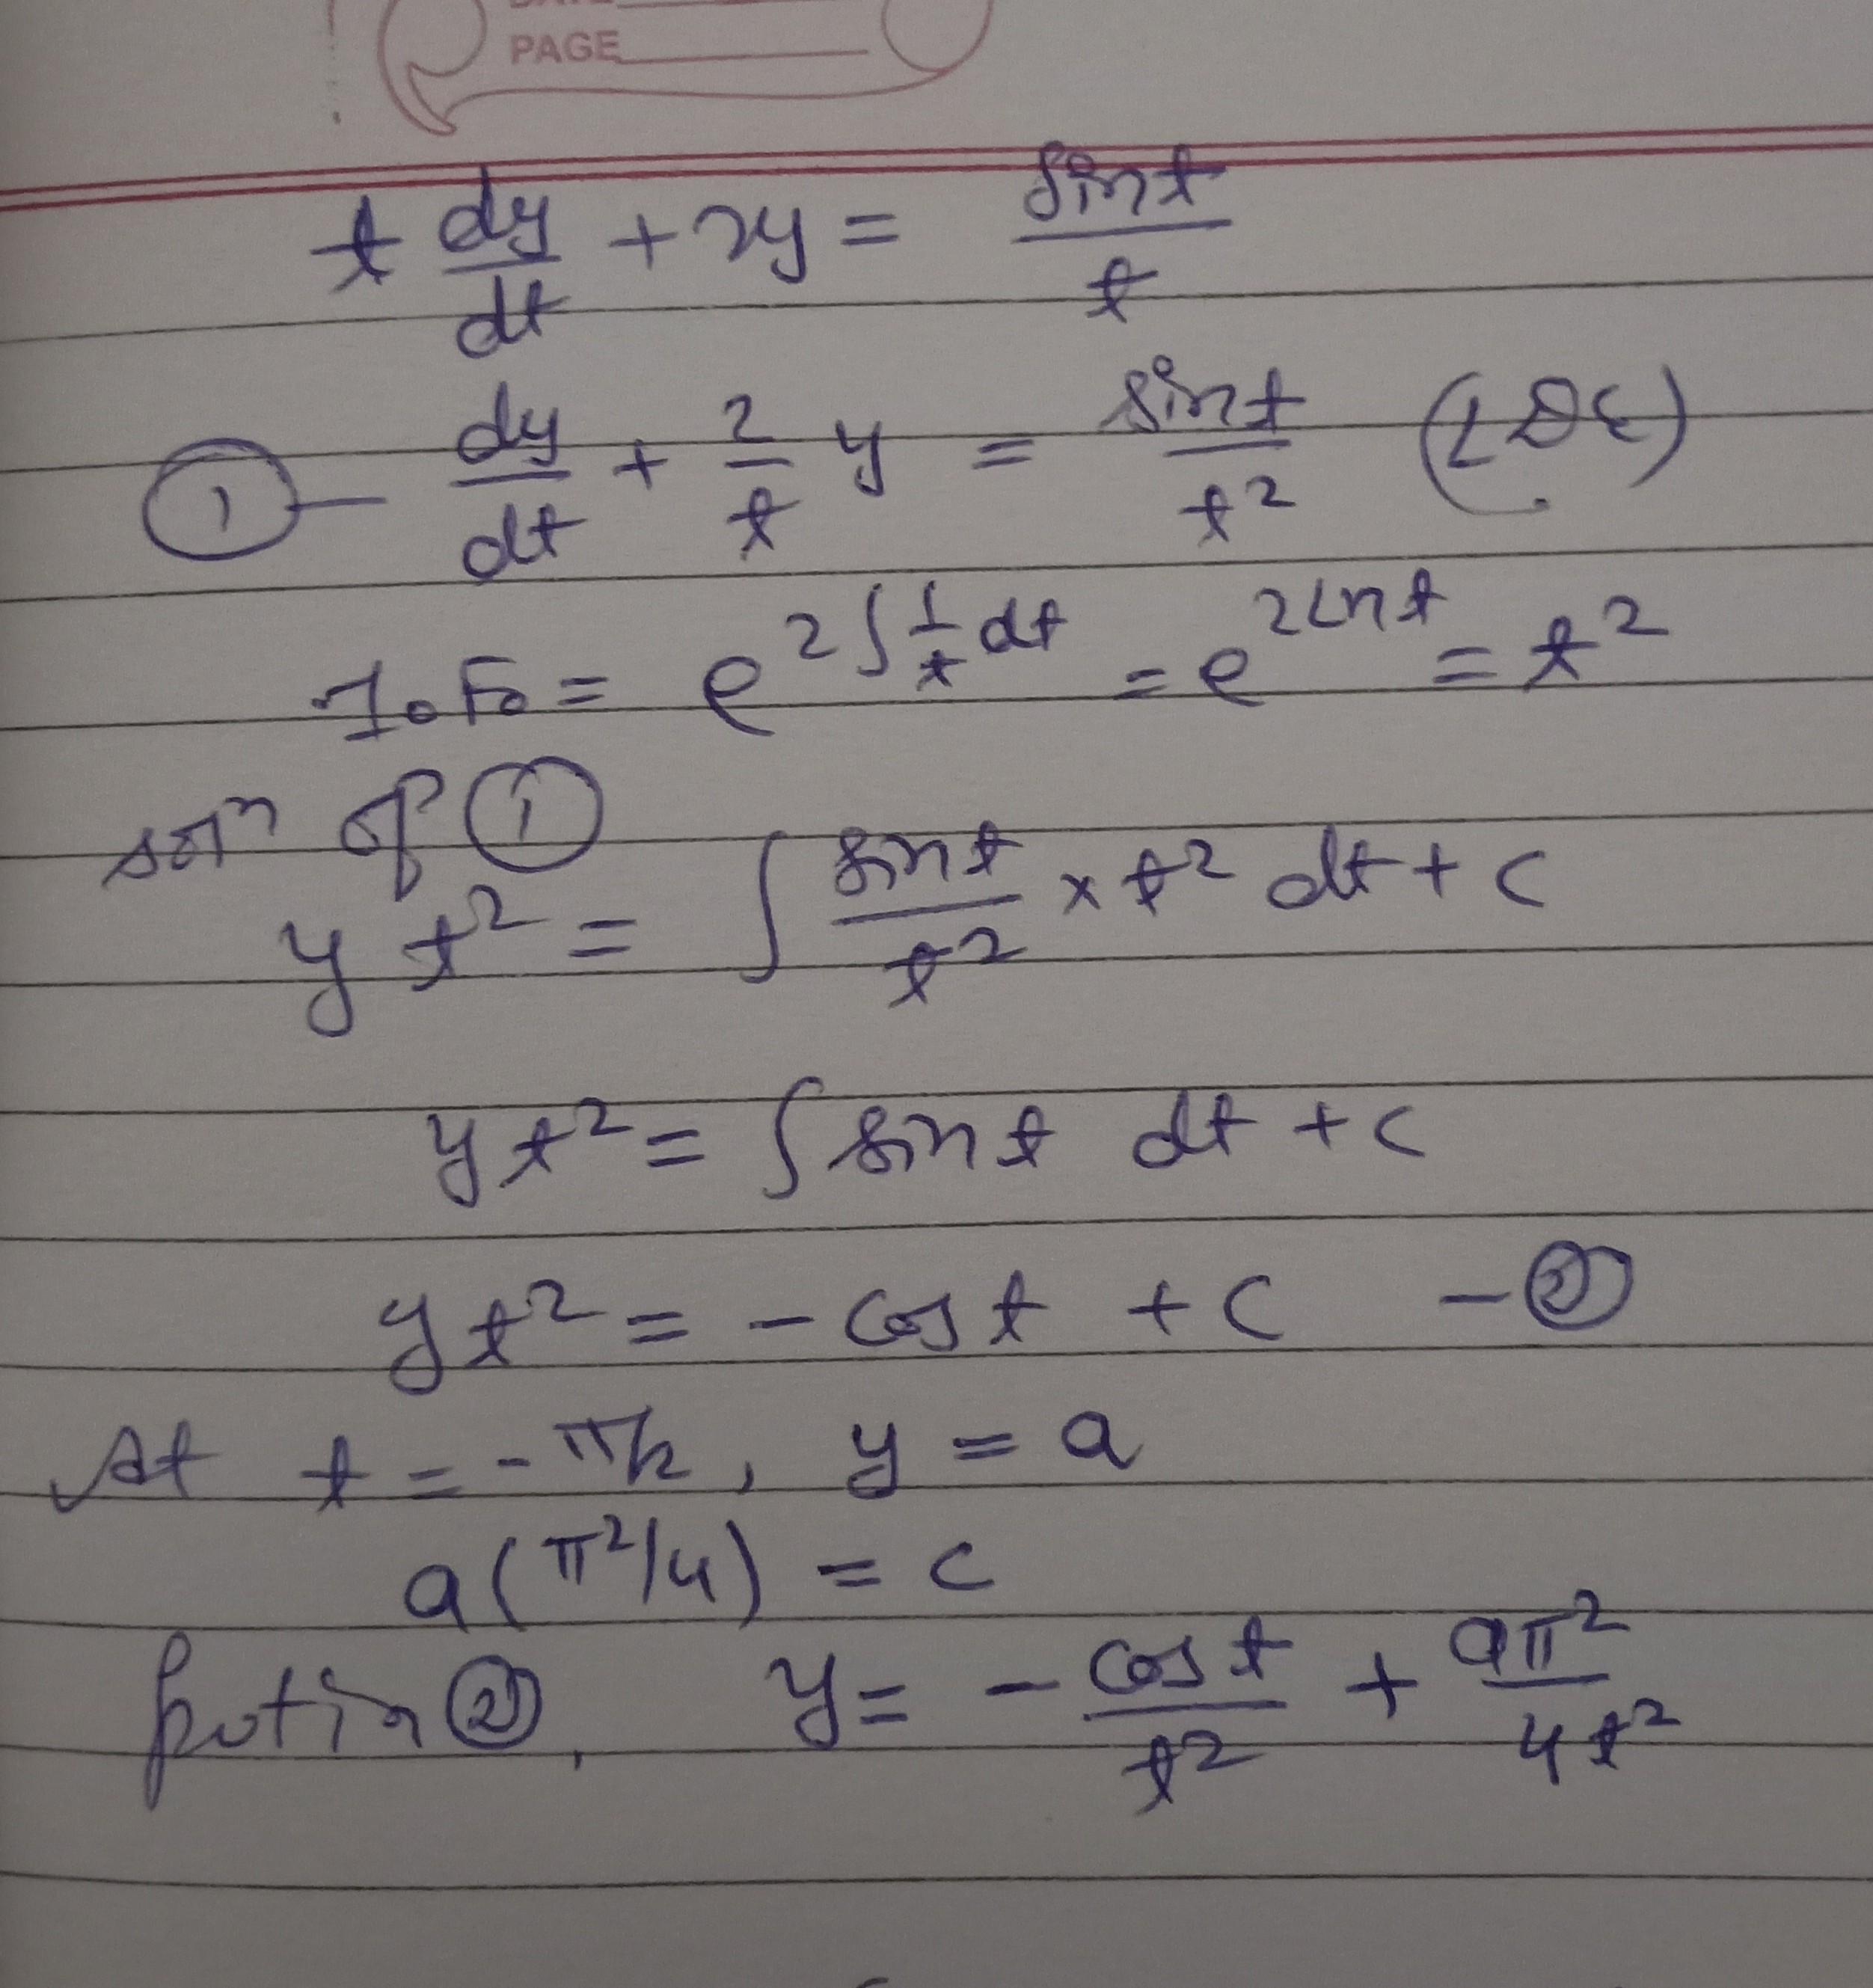 PAGE
t dy/dt + 2y = sint/t
① — dy/dt + 2/t y = sint/t² (LDE)
I.F. = e^(2∫1/t dt) = e^(2lnt) = t²
solⁿ of ①
y t² = ∫ sint/t² × t² dt + c
y t² = ∫ sint dt + c
y t² = - cos t + c - ②
At t = - π/2, y = a
a(π²/4) = c
put in ②, y = - cos t/t² + aπ²/4t²